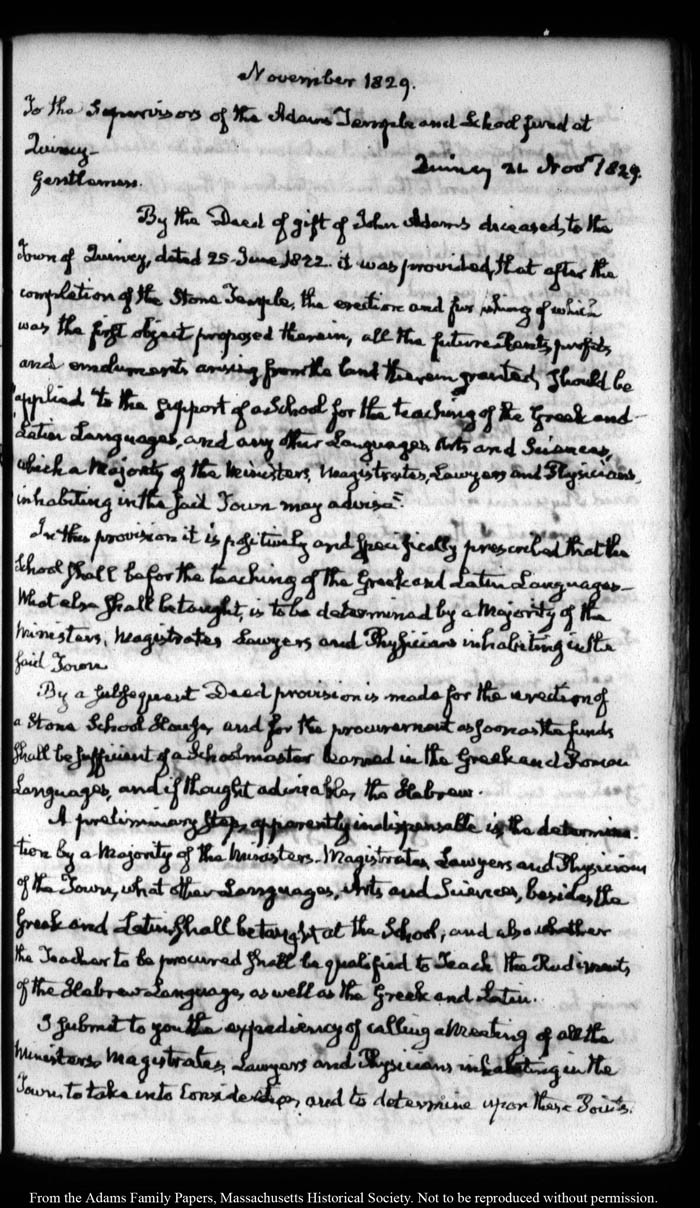 November 1829.
To the Supervisors of the Adams Temple and School fund at
Quincy-
Quincy 21 Novr 1829.
Gentlemen.
By the Deed of gift of John Adams deceased, to the
Town of Quincy, dated 25 June 1822. it was provided, that after the
completion of the Stone Temple, the erection and furnishing of which
was the first object proposed therein, all the future Rents, profits,
and emoluments arising from the land therein granted, should be
applied to the support of a School for the teaching of the Greek and
Latin Languages, and any other Languages, Arts and Sciences,
which a Majority of the Ministers, Magistrates, Lawyers and Physicians,
inhabiting in the said Town may advise.
In this provision it is positively and specifically prescribed that the
School shall be for the teaching of the Greek and Latin Languages-
What else shall be taught, is to be determined by a Majority of the
Ministers, Magistrates Lawyers and Physicians inhabiting in the
said Town
By a subsequent Deed provision is made for the erection of
a Stone School House, and for the procurement as soon as the funds
shall be sufficient of a Schoolmaster learned in the Greek and Roman
Languages, and if thought adviseable, the Hebrew.
A preliminary step, apparently indispensable is, the determina-
tion by a Majority of the Ministers. Magistrates, Lawyers and Physicians
of the Town, what other Languages, Arts and Sciences, besides the
Greek and Latin shall be taught at the School, and also whether
the Teacher to be procured shall be qualified to Teach the Rudiments
of the Hebrew Language, as well as the Greek and Latin.
I submit to you the expediency of calling a Meeting of all the
Ministers Magistrates, Lawyers and Physicians inhabiting in the
Town, to take into Consideration, and to determine upon these Points.
From the Adams Family Papers, Massachusetts Historical Society. Not to be reproduced without permission.